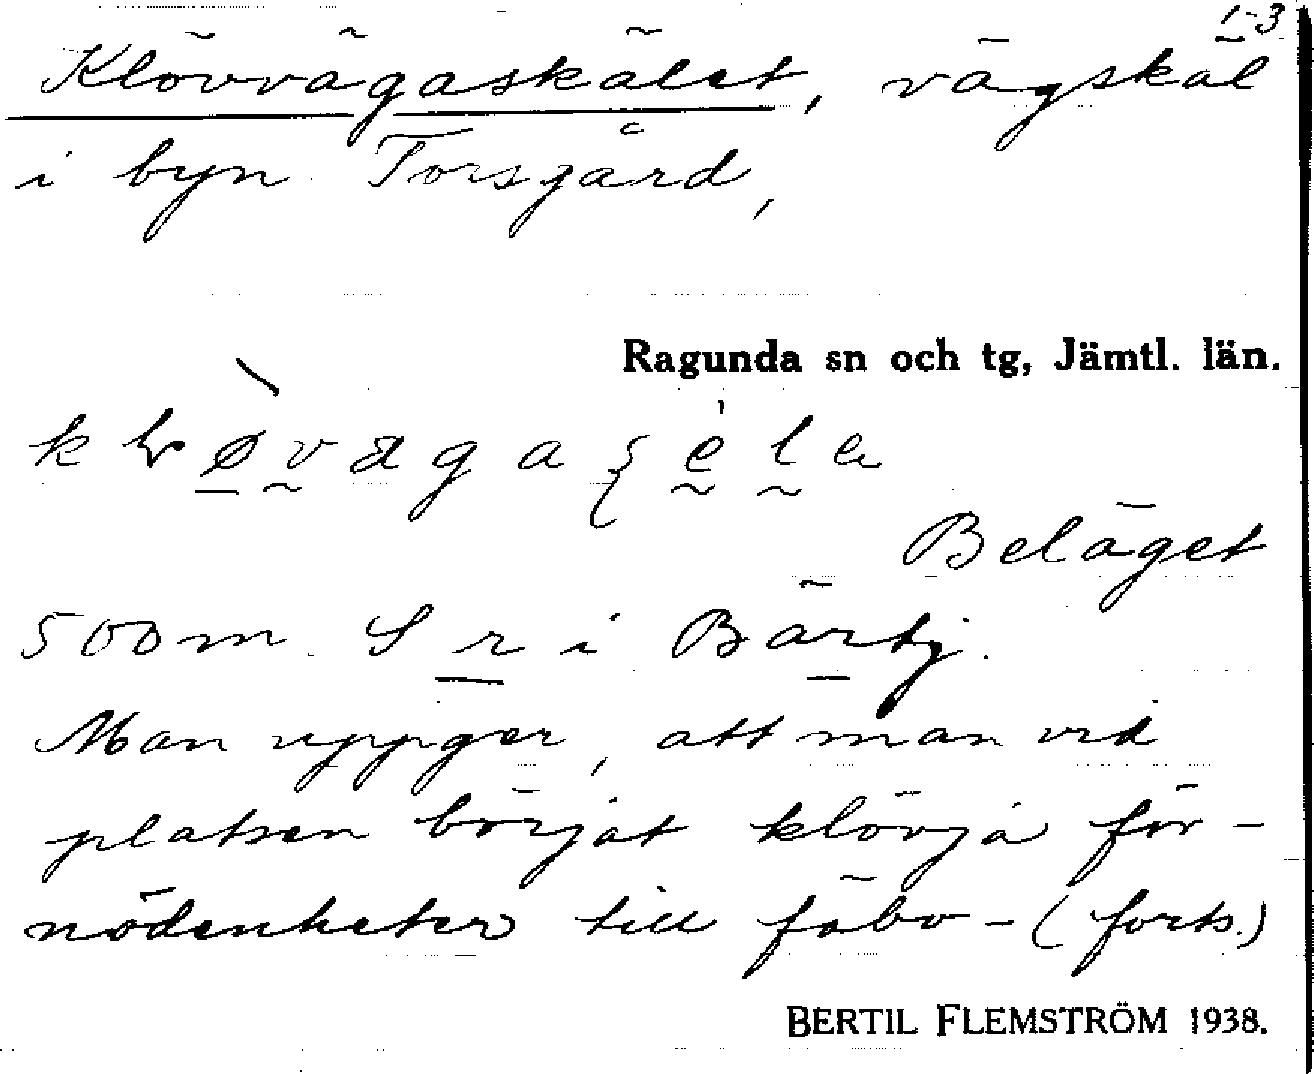 1-3
Klövvägaskälet, vägskäl
i byn Torsgård,
Ragunda sn och tg, Jämtl. län.
Beläget
500 m S r i Bärtj.
Man uppger, att man vid
platsen börjat klövja för-
nödenheter till fäbo- (forts.)
BERTIL FLEMSTRÖM 1938.